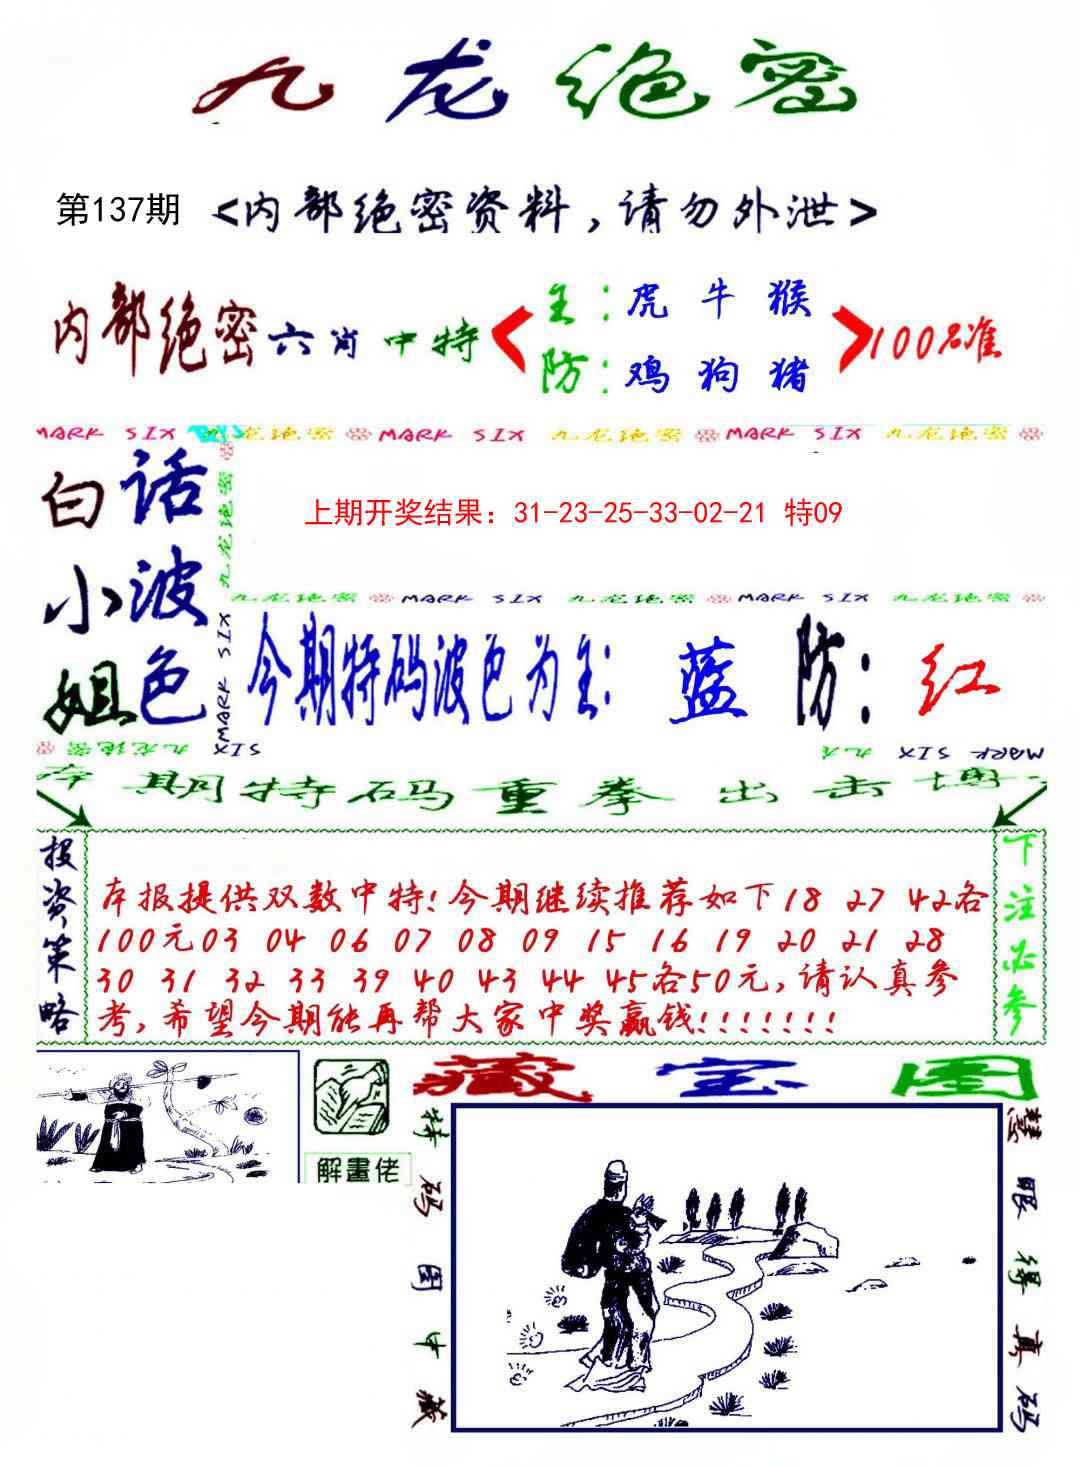 九龙绝密
第137期 <内部绝密资料,请勿外泄>
内部绝密六肖中特 < 主:虎 牛 猴 > 100%准
防:鸡 狗 猪
MARK SIX 九龙绝密 MARK SIX 九龙绝密 MARK SIX 九龙绝密
白话
小波
姐色
九龙绝密
MARK SIX
上期开奖结果：31-23-25-33-02-21 特09
九龙绝密 MARK SIX 九龙绝密 MARK SIX 九龙绝密
今期特码波色为主: 蓝 防: 红
九龙绝密 MARK SIX 九龙 MARK SIX
本期特码重拳出击博
投资策略
本报提供双数中特!今期继续推荐如下18 27 42各
100元03 04 06 07 08 09 15 16 19 20 21 28
30 31 32 33 39 40 43 44 45各50元,请认真参
考,希望今期能再帮大家中奖赢钱!!!!!!!
下注必参
解畫佬
藏宝图
特码图中藏
慧眼得真码